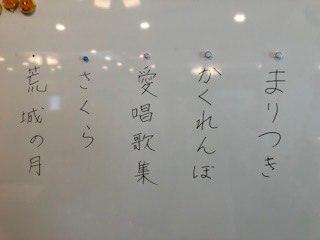 まりつき
かくれんぼ
愛唱歌集
さくら
荒城の月